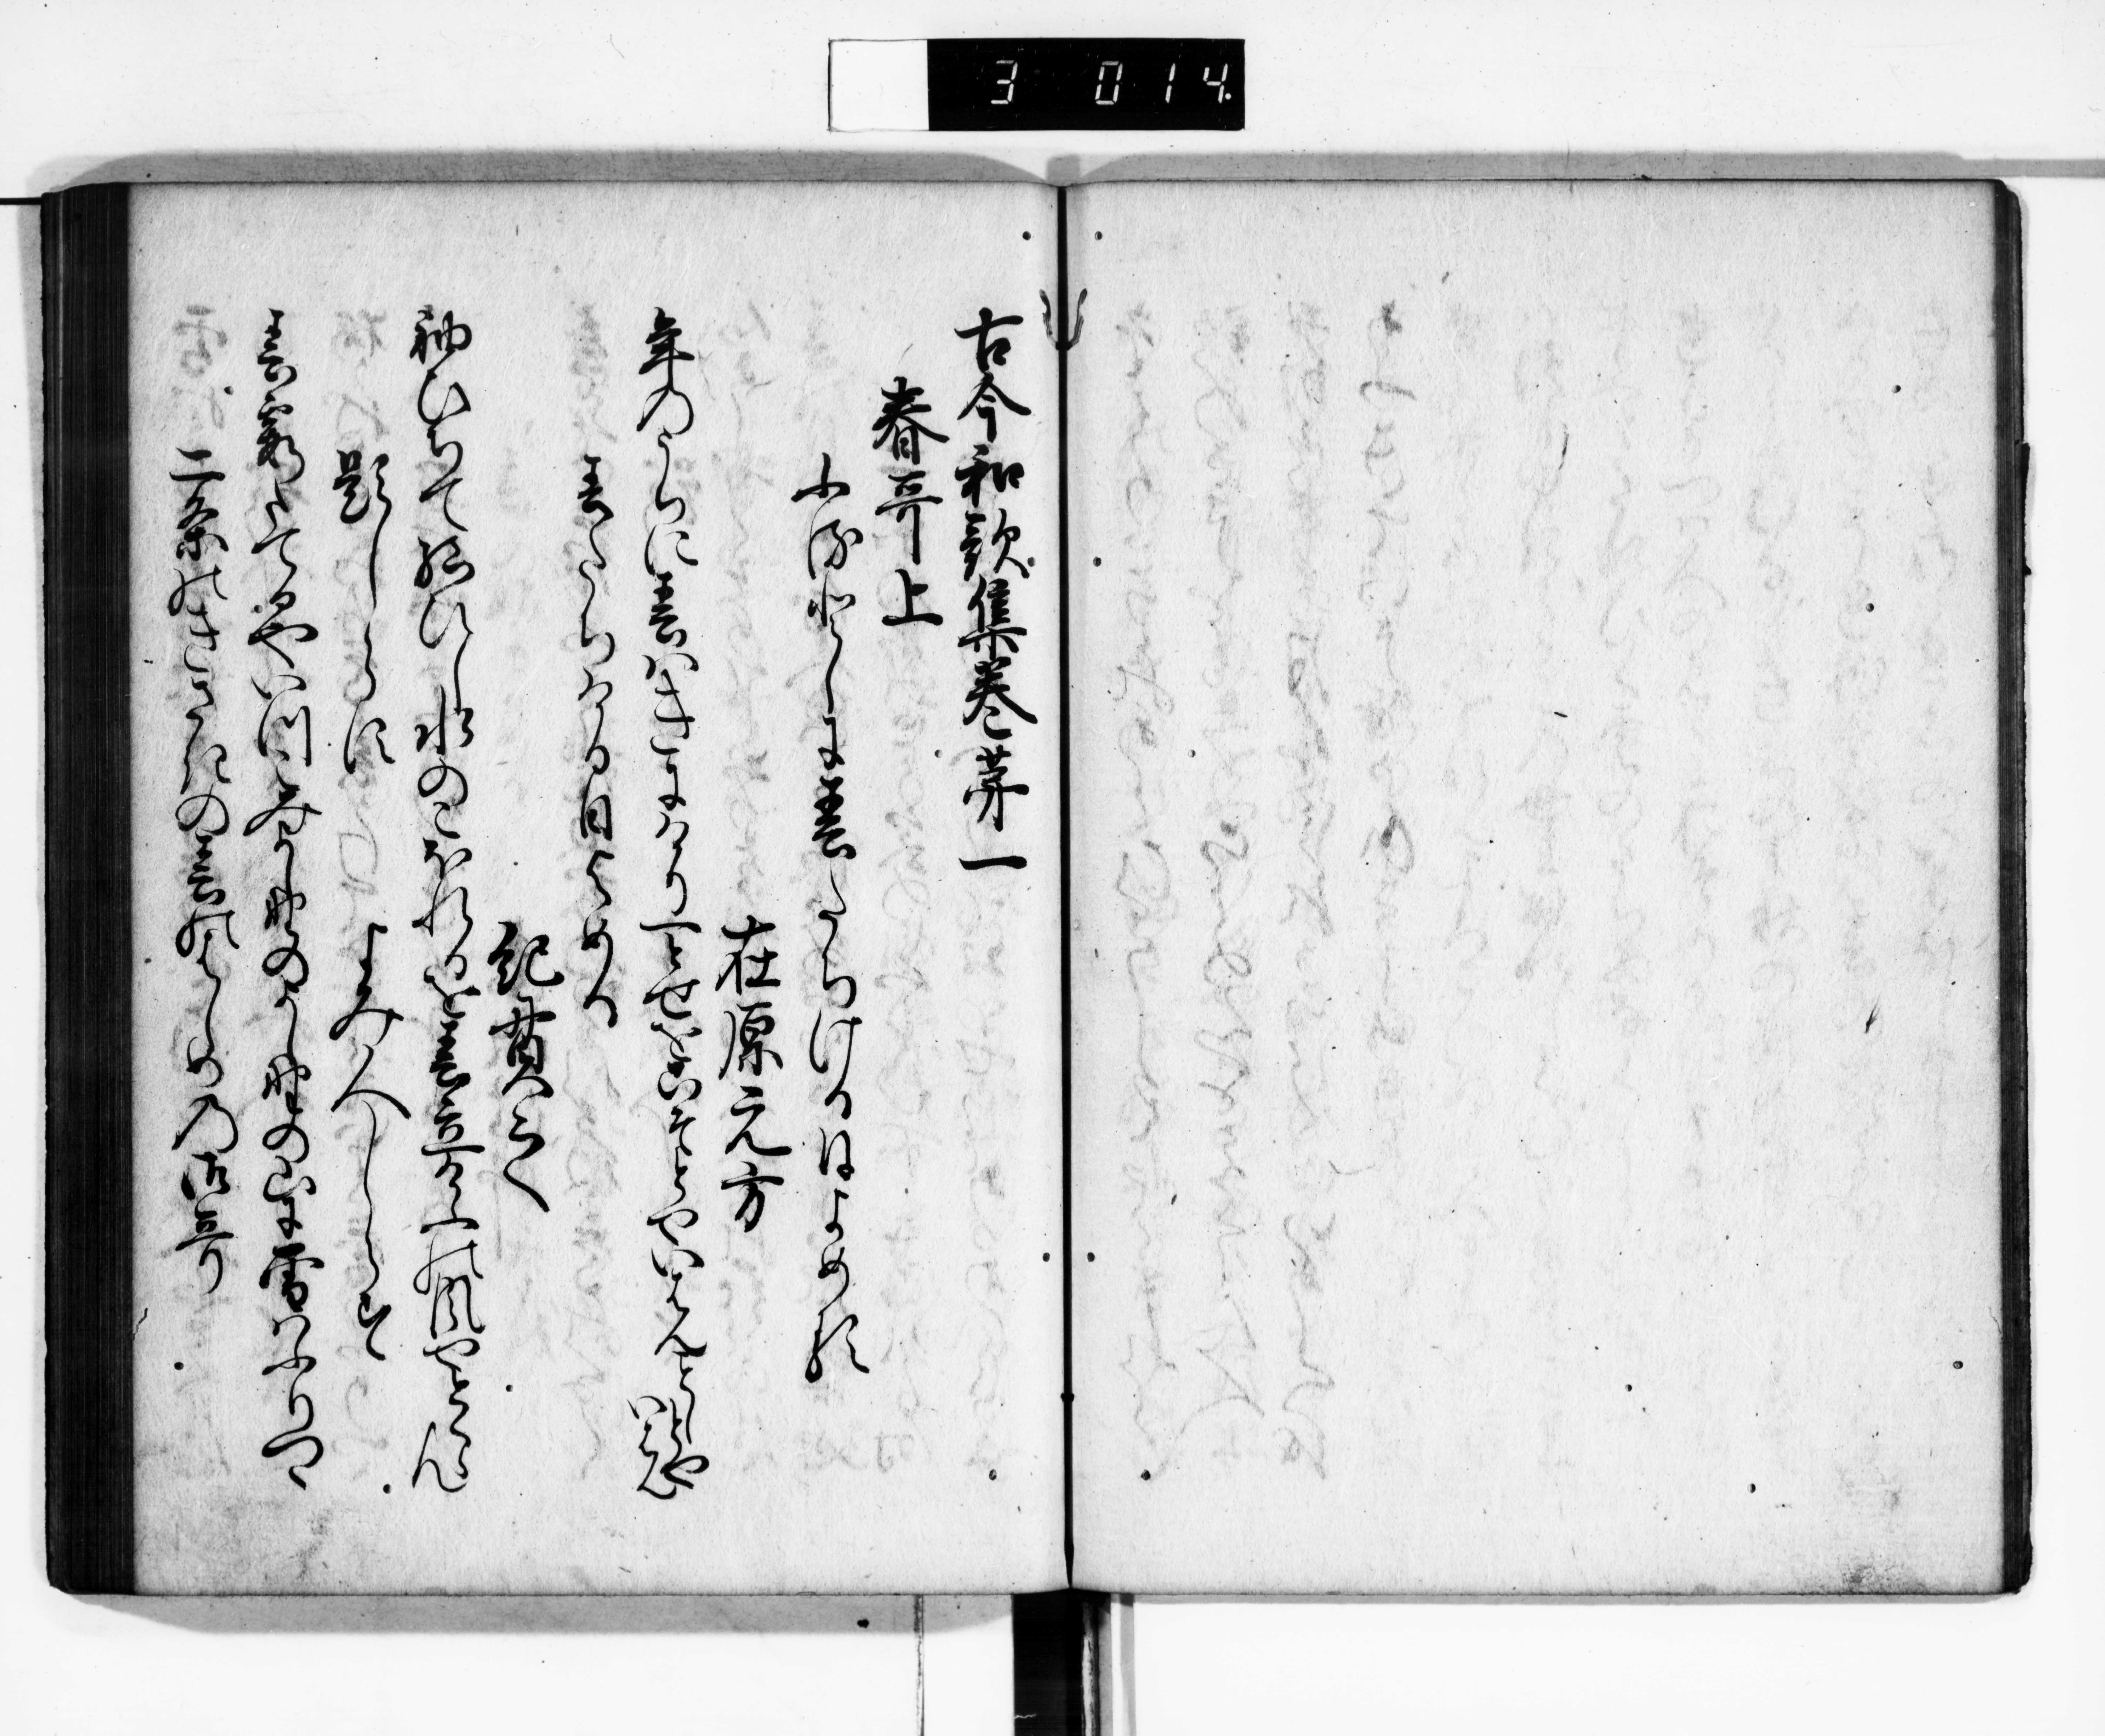 3 014
古今和歌集巻第一
春哥上
ふるとしに春たちける日よめる
在原元方
年のうちに春はきにけり一とせをこそとやいはんことしとやいはん
春たちける日よめる
紀貫之
袖ひちてむすひし水のこほれるを春立けふの風やとくらん
題しらす
よみ人しらす
春霞たてるやいつこみよし野のよし野の山に雪はふりつゝ
二条のきさきの春のはしめの御哥